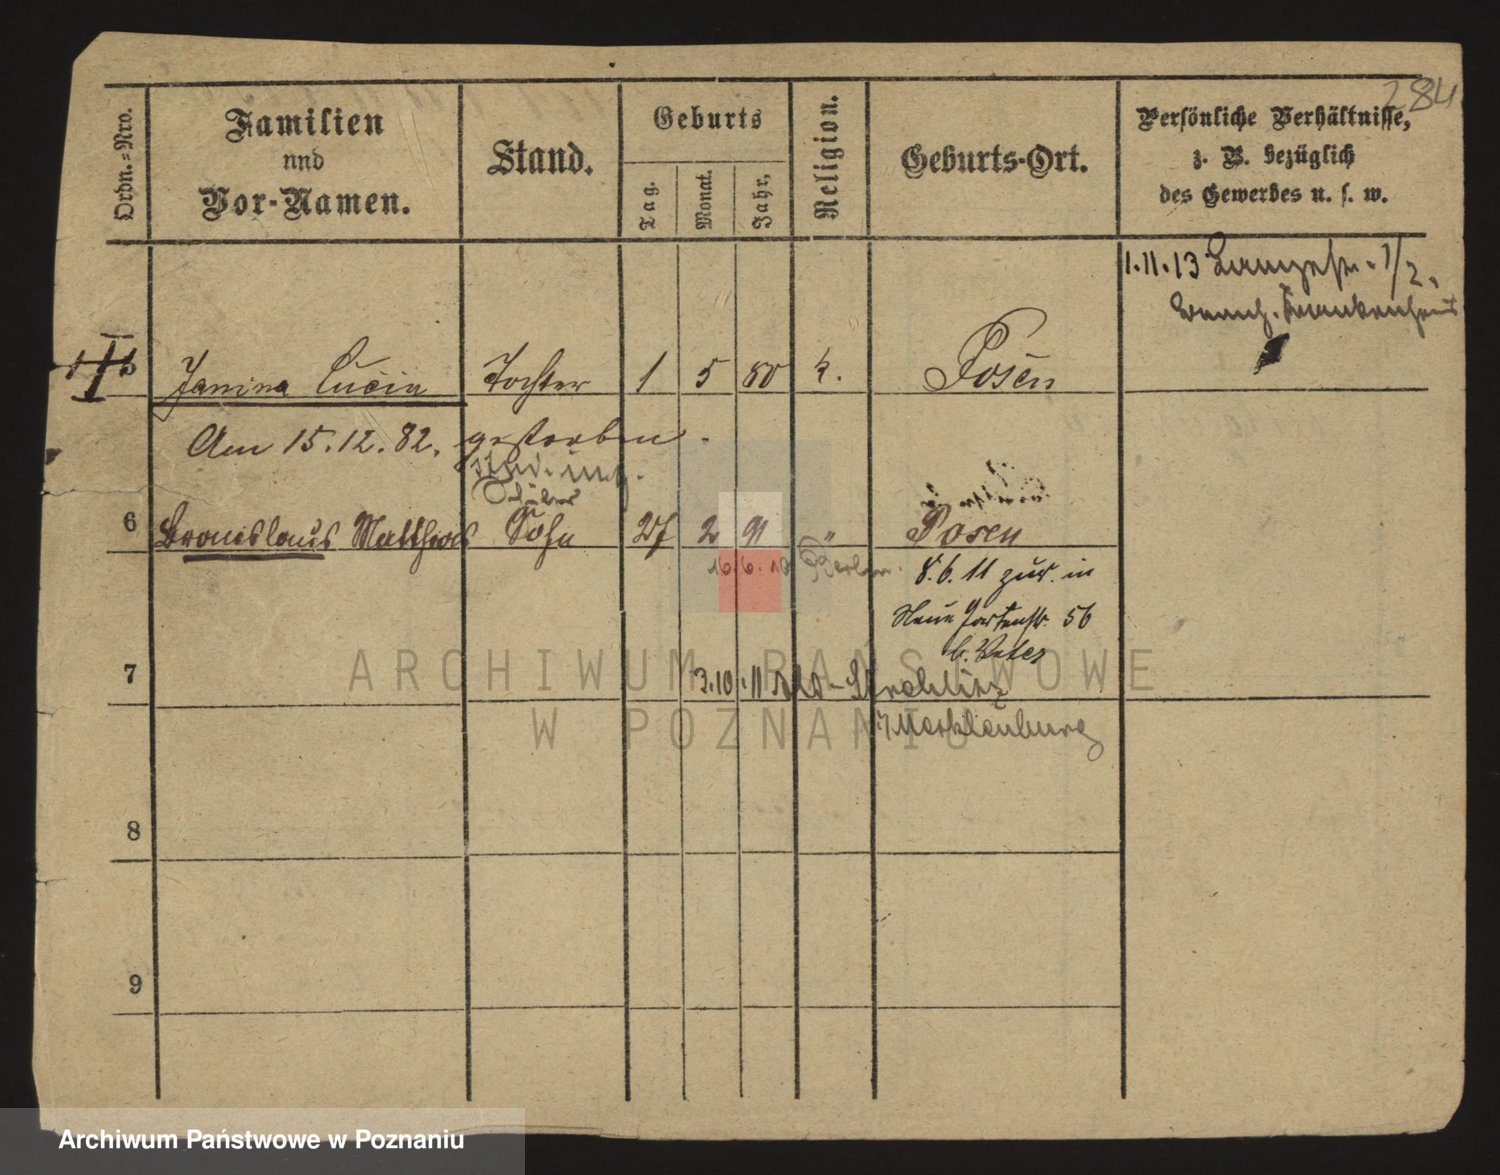 284
Ordn.=Nro.
Familien
und
Vor-Namen.
Stand.
Geburts
Tag.
Monat.
Jahr.
Religion.
Geburts-Ort.
Persönliche Verhältnisse,
z. B. bezüglich
des Gewerbes u. s. w.
1.11.13 Langestr. 7/2.
Krankenhaus
5 Janina Lucia Tochter 1 5 80 k. Posen
Am 15.12.82. gestorben.
Schüler
6 Bronislaus Matthias Sohn 27 2 91 " Posen
16.6.10 Berlin
8.6.11 zur. in
Neue Gartenstr. 56
b. Vater
7
3.10.11 Alt-Strelitz
i/Mecklenburg
8
9
ARCHIWUM PAŃSTWOWE
W POZNANIU
Archiwum Państwowe w Poznaniu